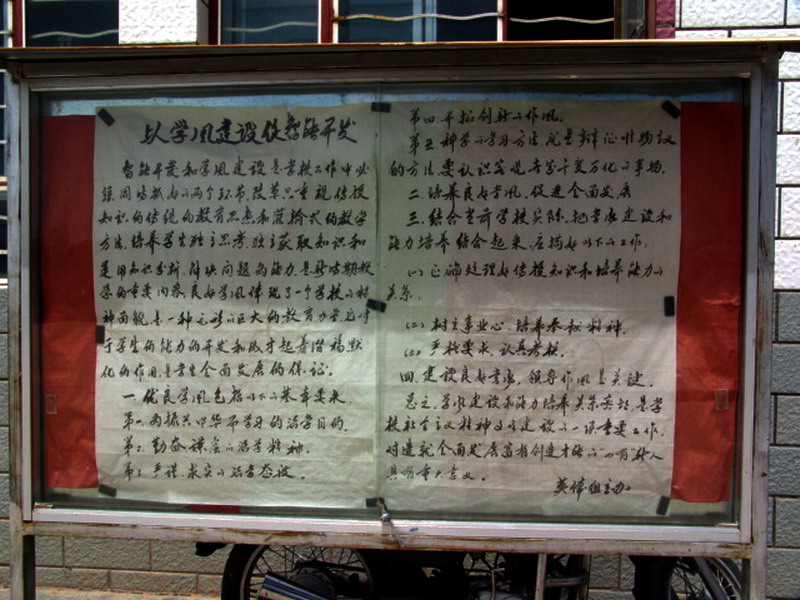 以学风建设促智能开发
智能开发和学风建设是学校工作中必
须同时抓好的两个环节,改革只重视传授
知识的传统的教育思想和灌输式的教学
方法,培养学生独立思考,独立获取知识和
运用知识分析、解决问题的能力,是新时期教
学的重要内容,良好学风体现了一个学校的精
神面貌,是一种无形的巨大的教育力量,它对
于学生的能力的开发和成才起着潜移默
化的作用,是学生全面发展的保证。
一、优良学风包括以下的基本要求。
第一、为振兴中华而学习的治学目的。
第二、勤奋 的治学精神。
第三、严谨、求实的治学态度。
第四、开拓创新的作风。
第五、科学的学习方法,就是辩证唯物主义
的方法,要认识客观 千变万化的事物。
二、培养良好学风,促进全面发展
三、结合当前学校实际,把学风建设和
能力培养结合起来,应搞好以下的工作。
(一)正确处理好传授知识和培养能力的
关系。
(二)树立事业心,培养奉献精神。
(三)严格要求,认真考核。
四、建设良好学风,领导作风是关键。
总之,学风建设和能力培养关系 ,是学
校社会主义精神文明建设的一项重要工作,
对造就全面发展富有创造才能的“四有”新人
具有重大意义。
英体组主办